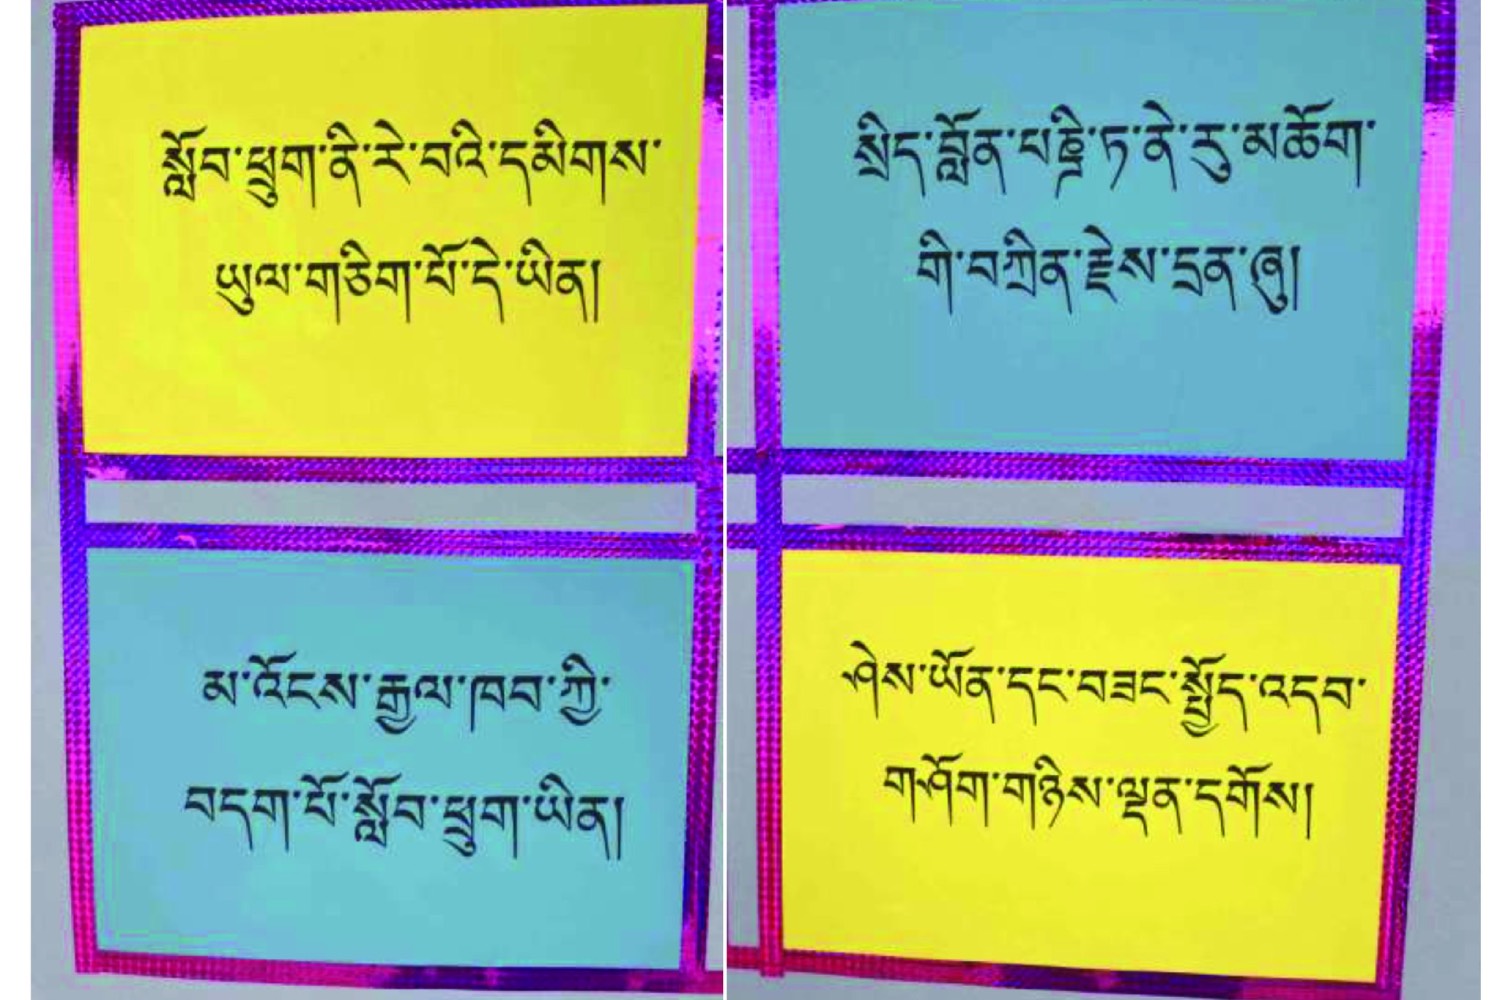 སློབ་ཕྲུག་ནི་རེ་བའི་དམིགས་
ཡུལ་གཅིག་པོ་དེ་ཡིན།
སྲིད་བློན་པཎྜི་ཏ་ནེ་རུ་མཆོག་
གི་བཀྲིན་རྗེས་དྲན་ཞུ།
མ་འོངས་རྒྱལ་ཁབ་ཀྱི་
བདག་པོ་སློབ་ཕྲུག་ཡིན།
ཤེས་ཡོན་དང་བཟང་སྤྱོད་འདབ་
གཤོག་གཉིས་ལྡན་དགོས།